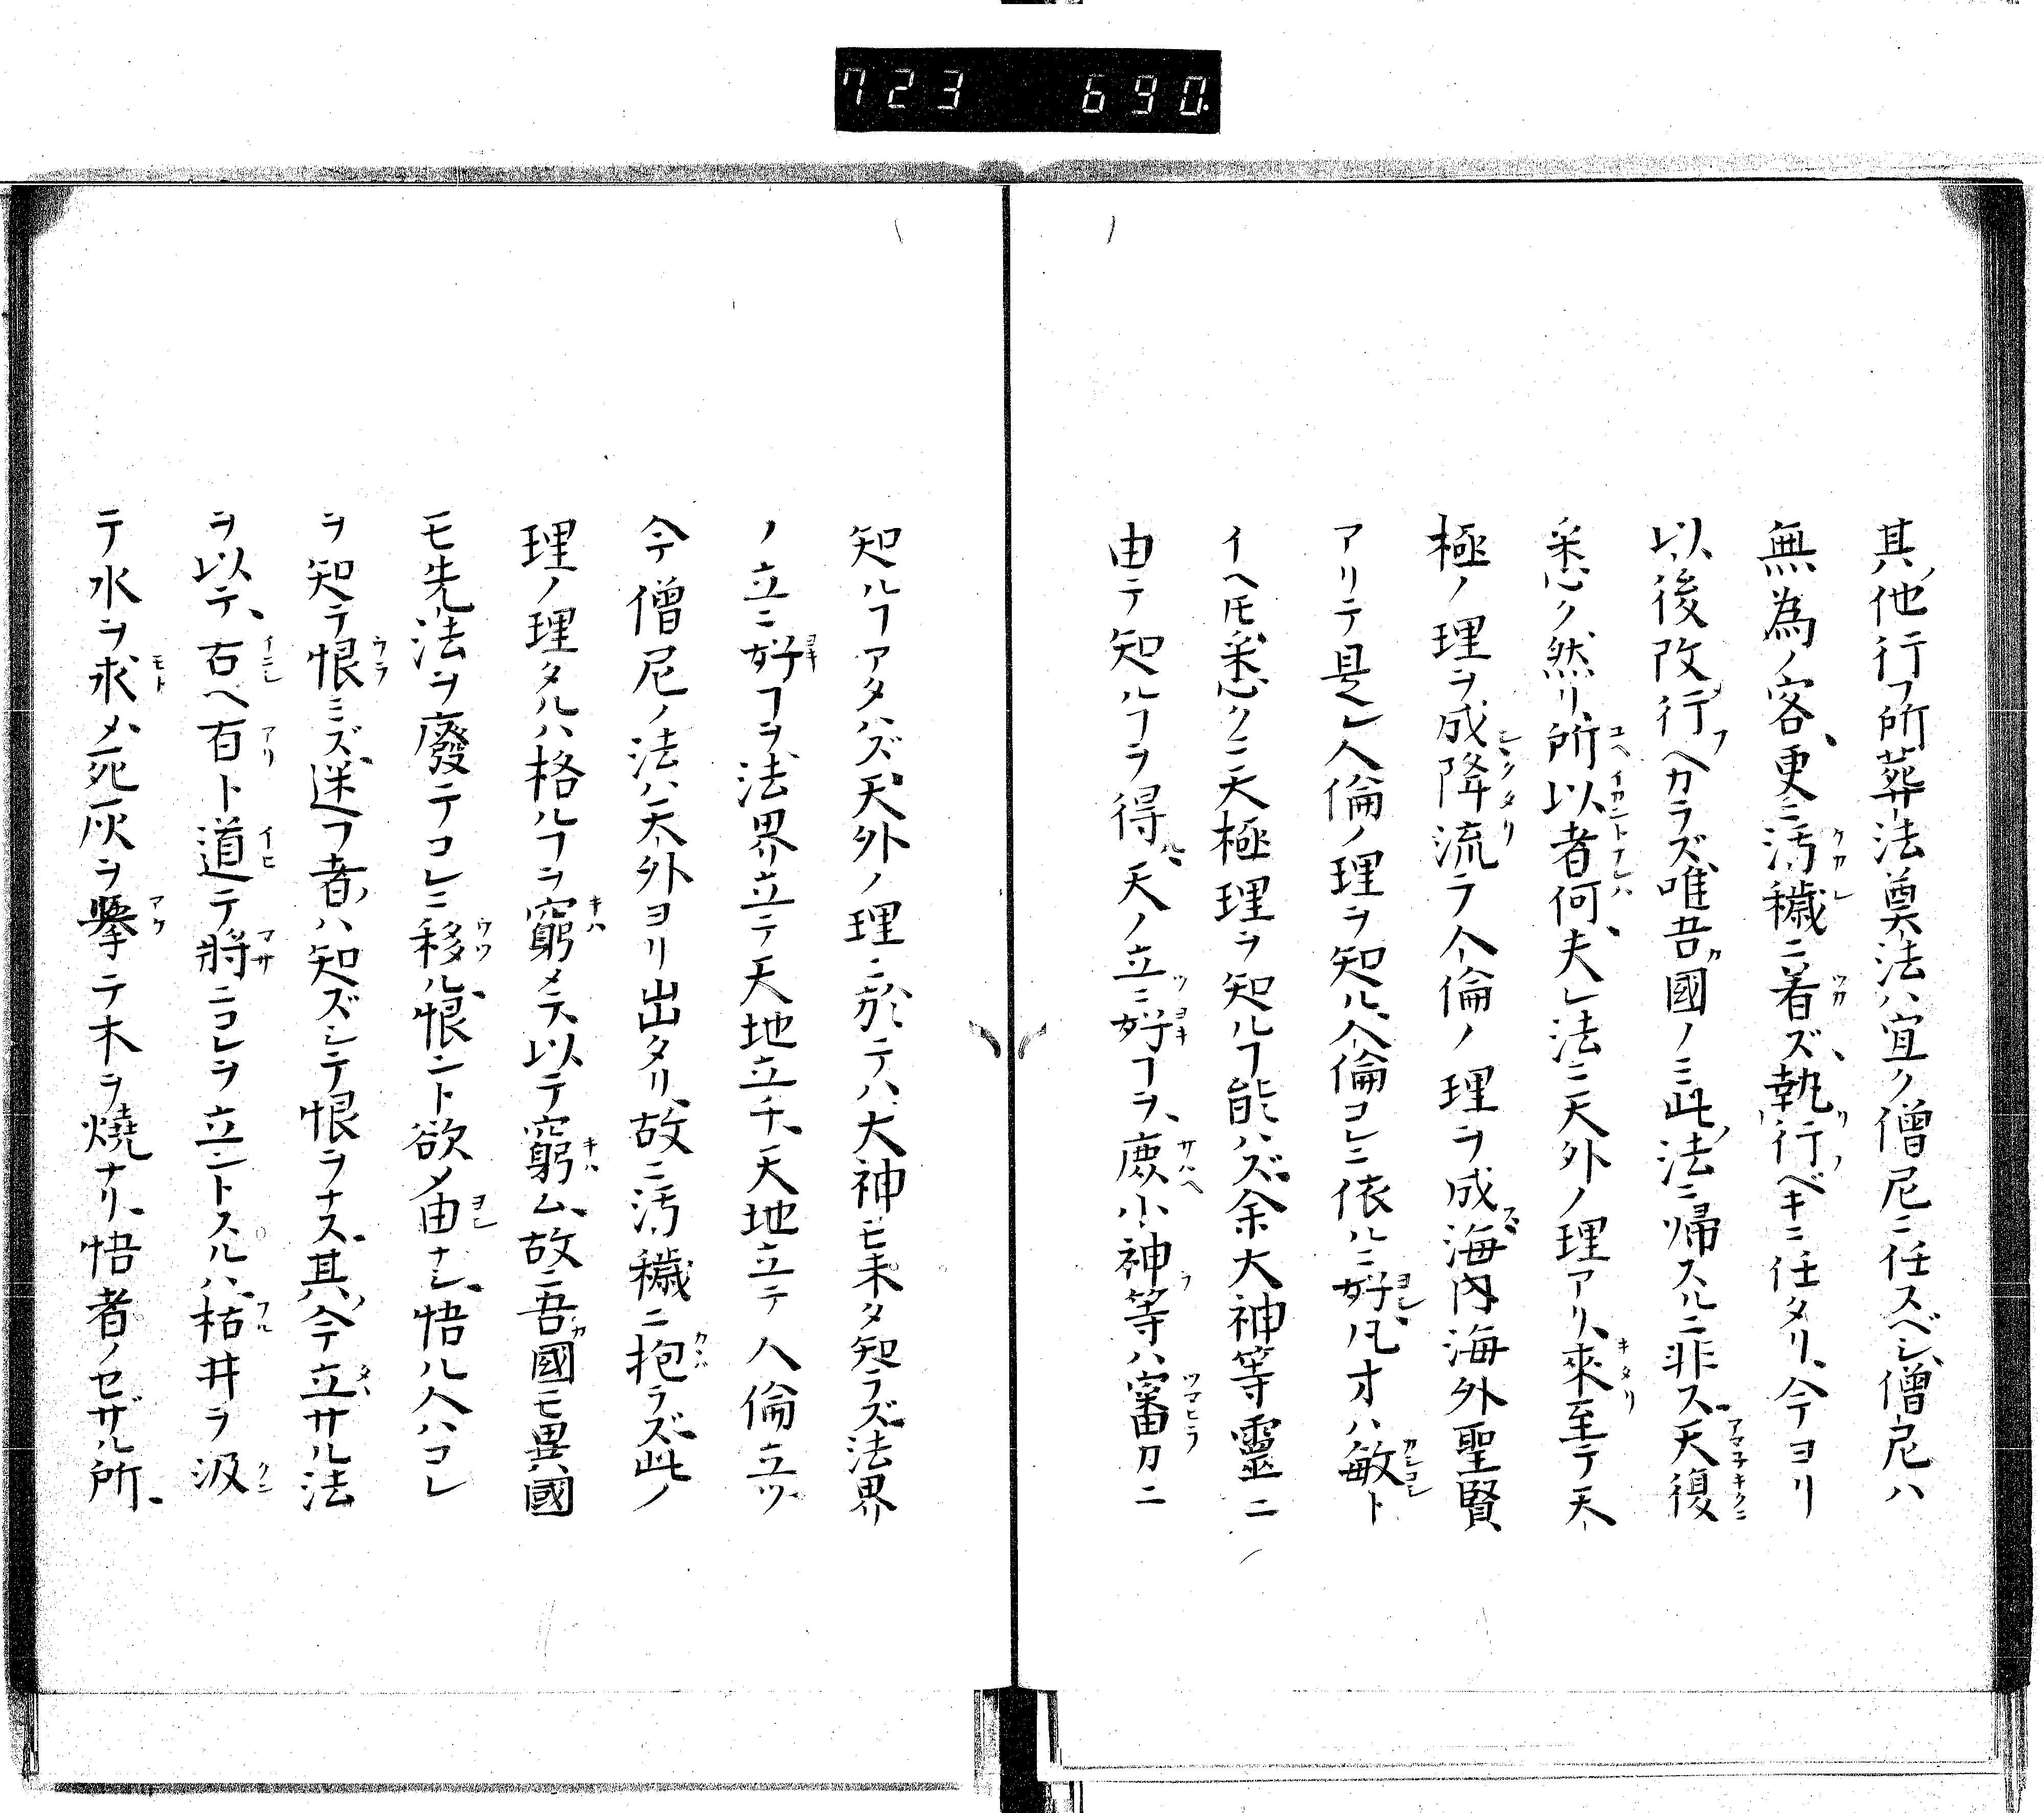 723 690.
其ノ他行フ所葬法奠法ハ宜ク僧尼ニ任スベシ、僧尼ハ
無為ノ客、更ニ汚穢ニ着ズ、執行ベキニ任タリ、今ヨリ
以後改行ヘカラズ、唯吾國ノミ此ノ法ニ帰スルニ非ス、天復
悉ク然リ、所以者何、夫レ法ニ天外ノ理アリ、來至テ天
極ノ理ヲ成降流テ人倫ノ理ヲ成海内海外聖賢
アリテ是レ人倫ノ理ヲ知ル、人倫コレニ依ルニ好シ、凡オハ敏ト
イヘ𪜈悉クニ天極理ヲ知ルヿ能ハズ、余大神等靈ニ
由テ知ルヿヲ得ル、天ノ立ニ好ヿヲ、麁小神等ハ審カニ
知ルヿアタハズ、天外ノ理ニ於テハ、大神モ未タ知ラズ、法界
ノ立ニ好ヿヲ、法界立テ天地立チ、天地立テ人倫立ツ、
今僧尼ノ法ハ天外ヨリ出タリ、故ニ汚穢ニ抱ラズ、此ノ
理ノ理タルハ格ルヿヲ窮メテ、以テ窮ム、故ニ吾國モ異國
モ先法ヲ廢テコレニ移ル、恨ント欲メ由ナシ、悟ル人ハコレ
ヲ知テ恨ミズ、迷フ者ノハ知ズシテ恨ヲナス、其ノ今立サル法
ヲ以テ、古ヘ有ト道テ將ニコレヲ立ントスルハ、枯井ヲ汲
テ水ヲ求メ、死灰ヲ擧テ木ヲ燒ナリ、悟者ノセザル所、